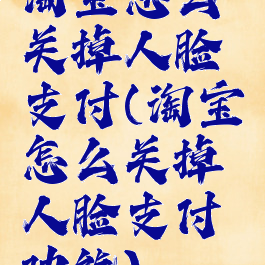 淘宝怎么
关掉人脸
支付(淘宝
怎么关掉
人脸支付
功能)